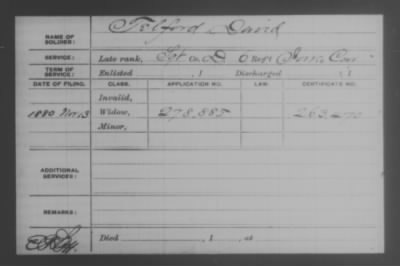 NAME OF SOLDIER: Telford David
SERVICE: Late rank, Sgt Co. D 6 Reg't Iowa Cav
TERM OF SERVICE: Enlisted , 1 Discharged , 1
DATE OF FILING. CLASS. APPLICATION NO. LAW. CERTIFICATE NO.
Invalid,
1880 Nov 13 Widow, 278.885
Minor,
ADDITIONAL SERVICES:
REMARKS:
Died , 1 , at